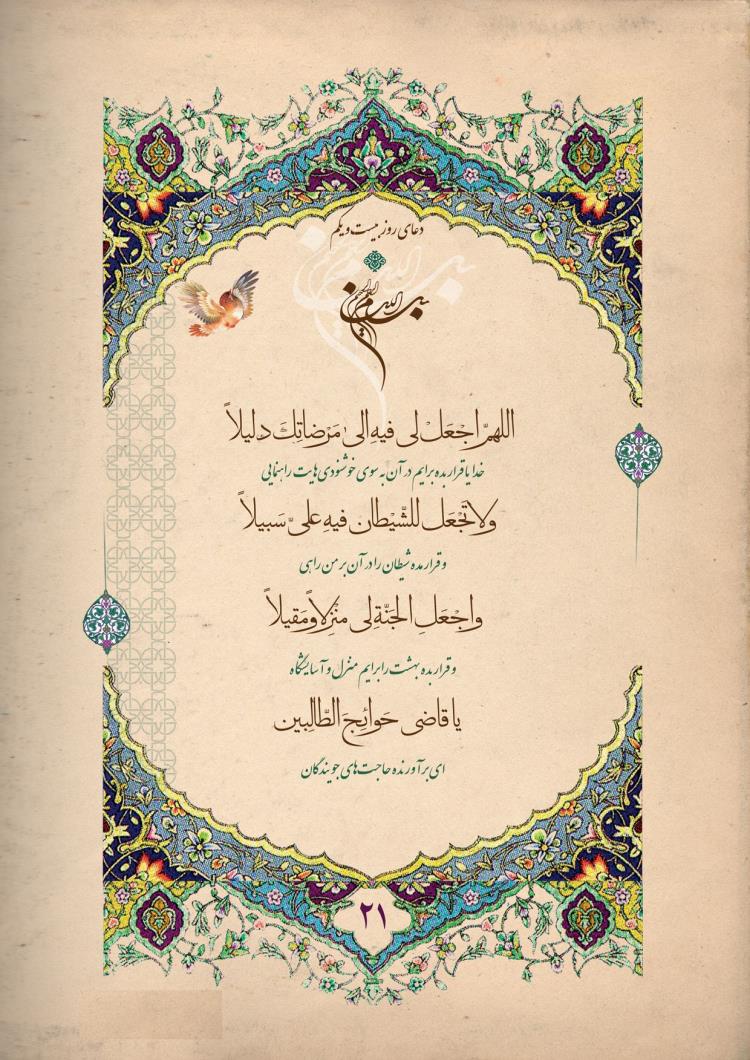 دعای روز بیست و یکم
بسم الله الرحمن الرحیم
اللهمّ اجْعَلْ لی فیهِ الی مَرْضاتِكَ دلیلاً
خدایا قرار بده برایم در آن به سوی خوشنودی هایت راهنمایی
ولا تَجْعَل للشّیْطان فیهِ علیّ سَبیلاً
و قرار مده شیطان را در آن بر من راهی
واجْعَلِ الجَنّةِ لی منْزِلاً ومَقیلاً
و قرار بده بهشت را برایم منزل و آسایشگاه
یا قاضی حَوائِجَ الطّالِبین
ای برآورنده حاجت های جویندگان
۲۱